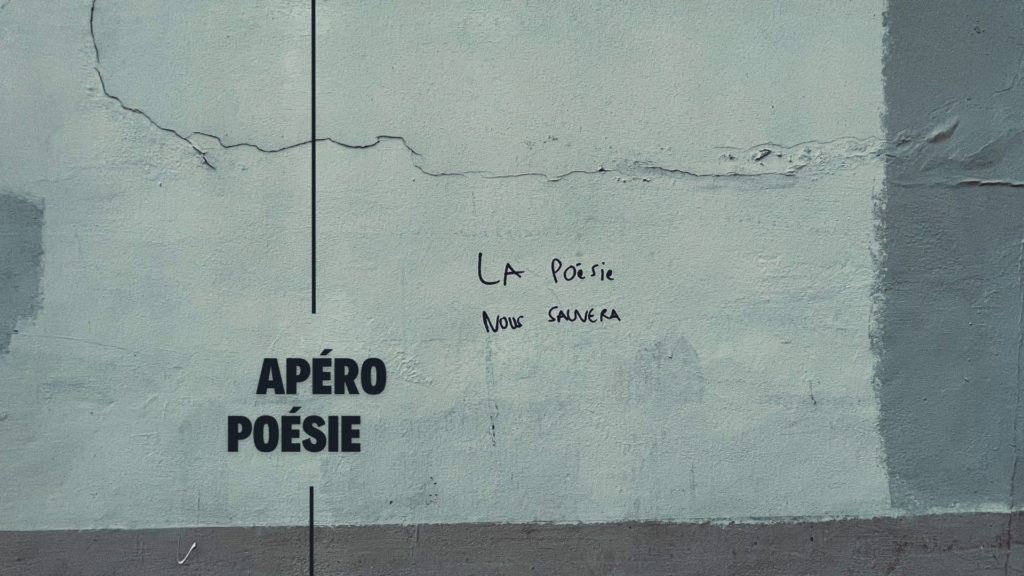 La Poésie
Nous sauvera
APÉRO
POÉSIE